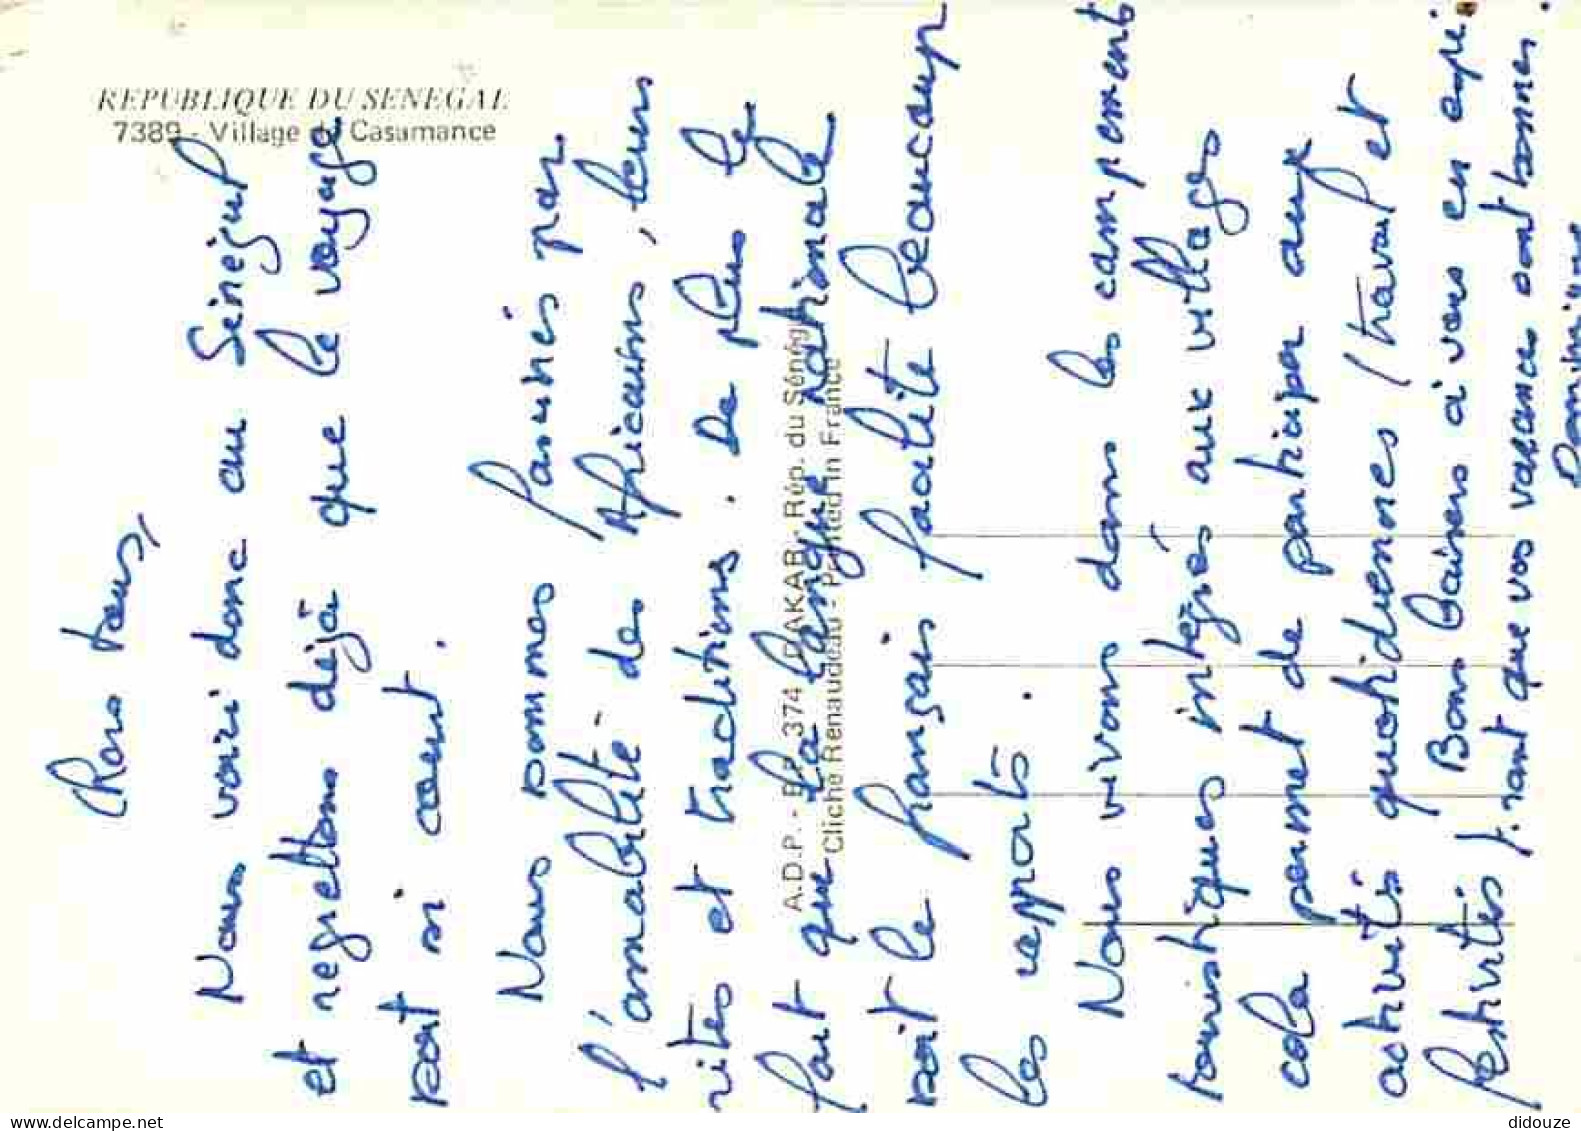 REPUBLIQUE DU SENEGAL
7389 - Village de Casamance
A.D.P. - B.P. 374 DAKAR - Rép. du Sénég
Cliché Renaudeau - Printed in France
Chers tous,
Nous voici donc au Sénégal
et regrettons déjà que le voyage
soit si court.
Nous sommes fascinés par
l'amabilité des Africains, leurs
rites et traditions. De plus le
fait que la langue nationale
soit le français facilite beaucoup
les rapports.
Nous vivons dans les campements
touristiques intégrés aux villages
cela permet de participer aux
activités quotidiennes (travail et
festivités). Bons baisers à vous en espé-
rant que vos vacances sont bonnes.
didouze